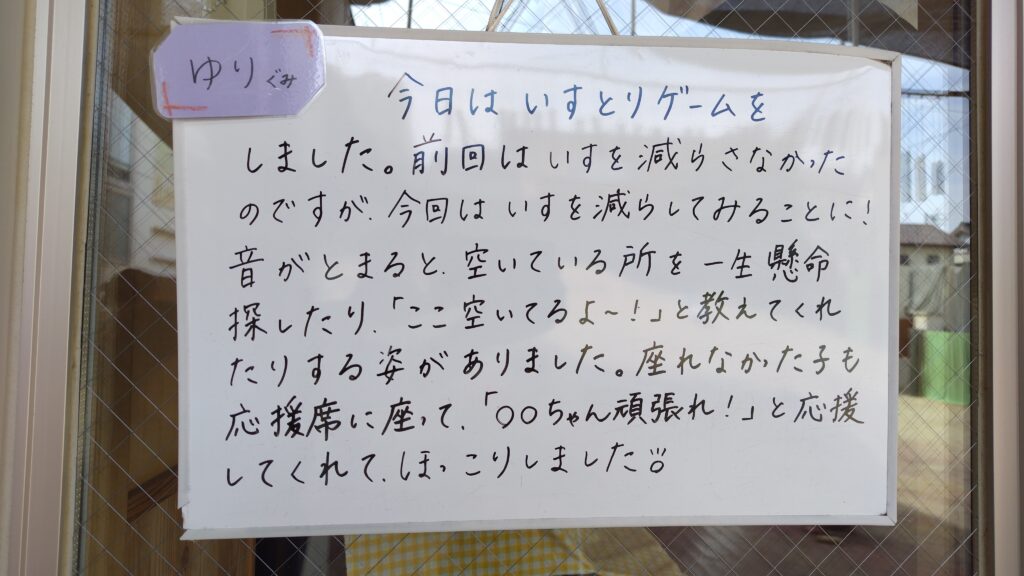 ゆりぐみ
今日は いすとりゲームを
しました。前回は いすを減らさなかった
のですが、今回は いすを減らしてみることに!
音がとまると、空いている所を一生懸命
探したり、「ここ空いてるよ~!」と教えてくれ
たりする姿がありました。座れなかった子も
応援席に座って、「○○ちゃん頑張れ!」と応援
してくれて、ほっこりしました